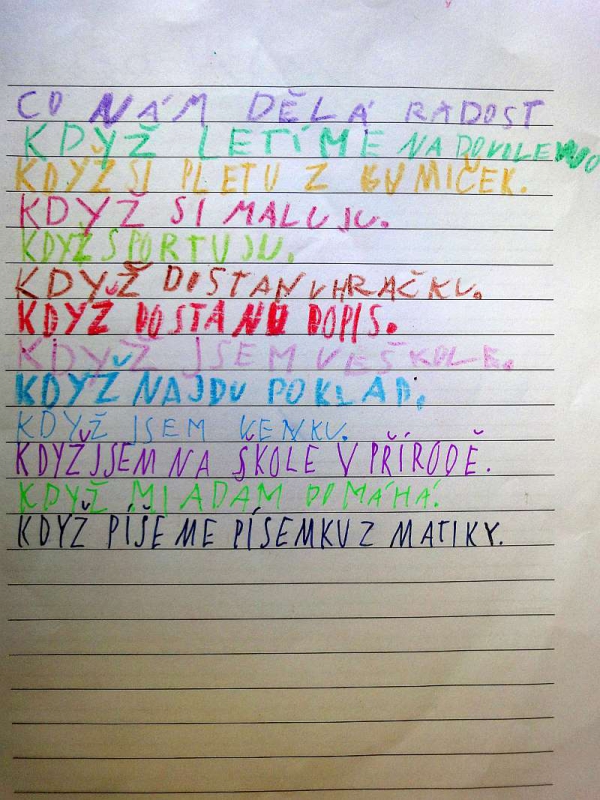 CO NÁM DĚLÁ RADOST
KDYŽ LETÍME NA DOVOLENOU
KDYŽ SI PLETU Z GUMIČEK.
KDYŽ SI MALUJU.
KDYŽ SPORTUJU.
KDYŽ DOSTANU HRAČKU.
KDYŽ DOSTANU DOPIS.
KDYŽ JSEM VE ŠKOLE.
KDYŽ NAJDU POKLAD.
KDYŽ JSEM VENKU.
KDYŽ JSEM NA ŠKOLE V PŘÍRODĚ.
KDYŽ MI ADAM POMÁHÁ.
KDYŽ PÍŠEME PÍSEMKU Z MATIKY.